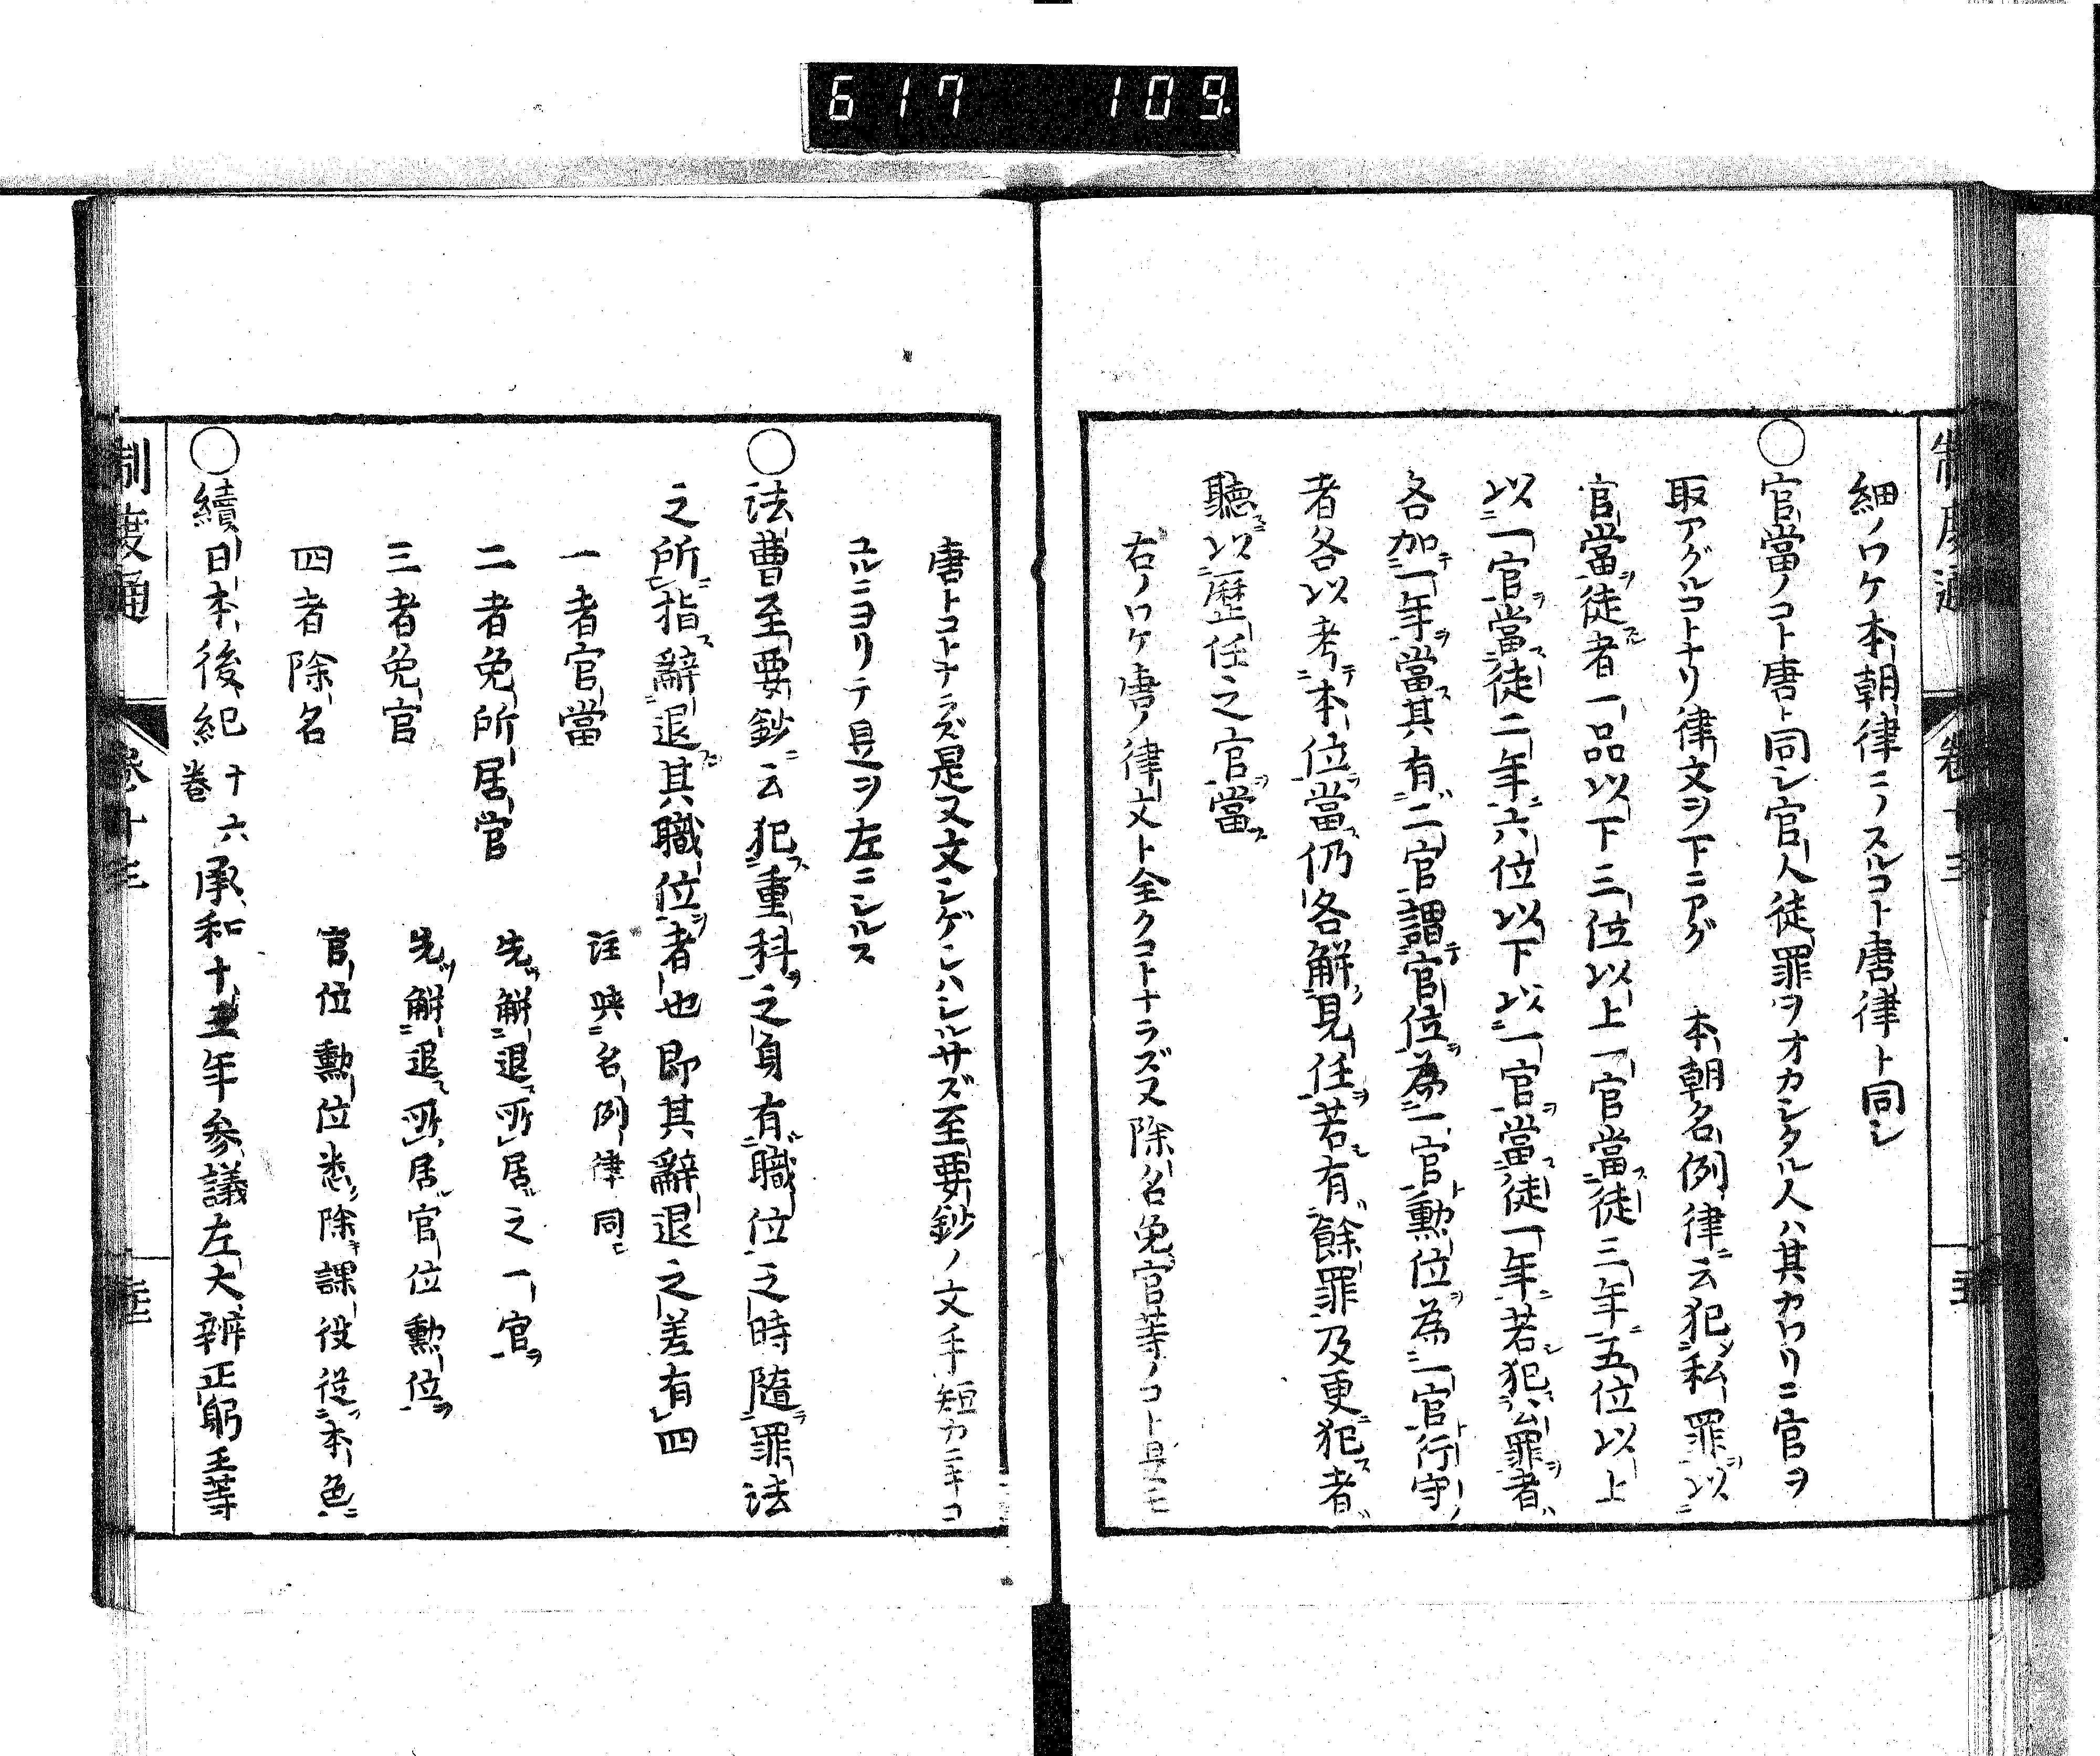 617 109
制度通 巻十三 五
細ノワケ本朝律ニノスルコト唐律ト同シ
〇官當ノコト唐ト同シ官人徒罪ヲオカシタル人ハ其カワリニ官ヲ
取アグルコトナリ律文ヲ下ニアグ 本朝名例律ニ云犯シ私罪ヲ以ニ
官當ヲ徒スル者一品以下三位以上一官當ス徒三年ニ五位以上
以ニ一官ヲ當ス徒二年ニ六位以下以ニ一官ヲ當ス徒一年ニ若シ犯公罪ヲ者ハ
各加テ一年ヲ當ス其有ニ二官謂テ官位ヲ為ニ一官ト勲位ヲ為ニ一官ト行守ノ
者各以考テ本位ヲ當ス仍各解ノ見任ヲ若シ有ニ餘罪及更ニ犯ス者ハ
聽ニ以歴任之官ヲ當ス
右ノワケ唐ノ律文ト全クコトナラズ又除名免官等ノコト是モ
唐トコトナラズ是又文シゲシハシルサズ至要鈔ノ文手短カニキコ
ユルニヨリテ是ヲ左ニシルス
〇法曹至要鈔ニ云犯ス重科ヲ之身有ニ職位之時隨ニ罪法
之所ニ指ス辭退スル其職位ヲ者也即其辭退之差有四
一者官當 註映ニ名例律同シ
二者免所居官 先ツ解退ス所居之一官ヲ
三者免官 先ツ解退ス所居官位勲位ヲ
四者除名 官位勲位悉ク除キ課役從フ本色ニ
〇續日本後紀十六巻承和十五年參議左大辨正躬王等
制度通 巻十三